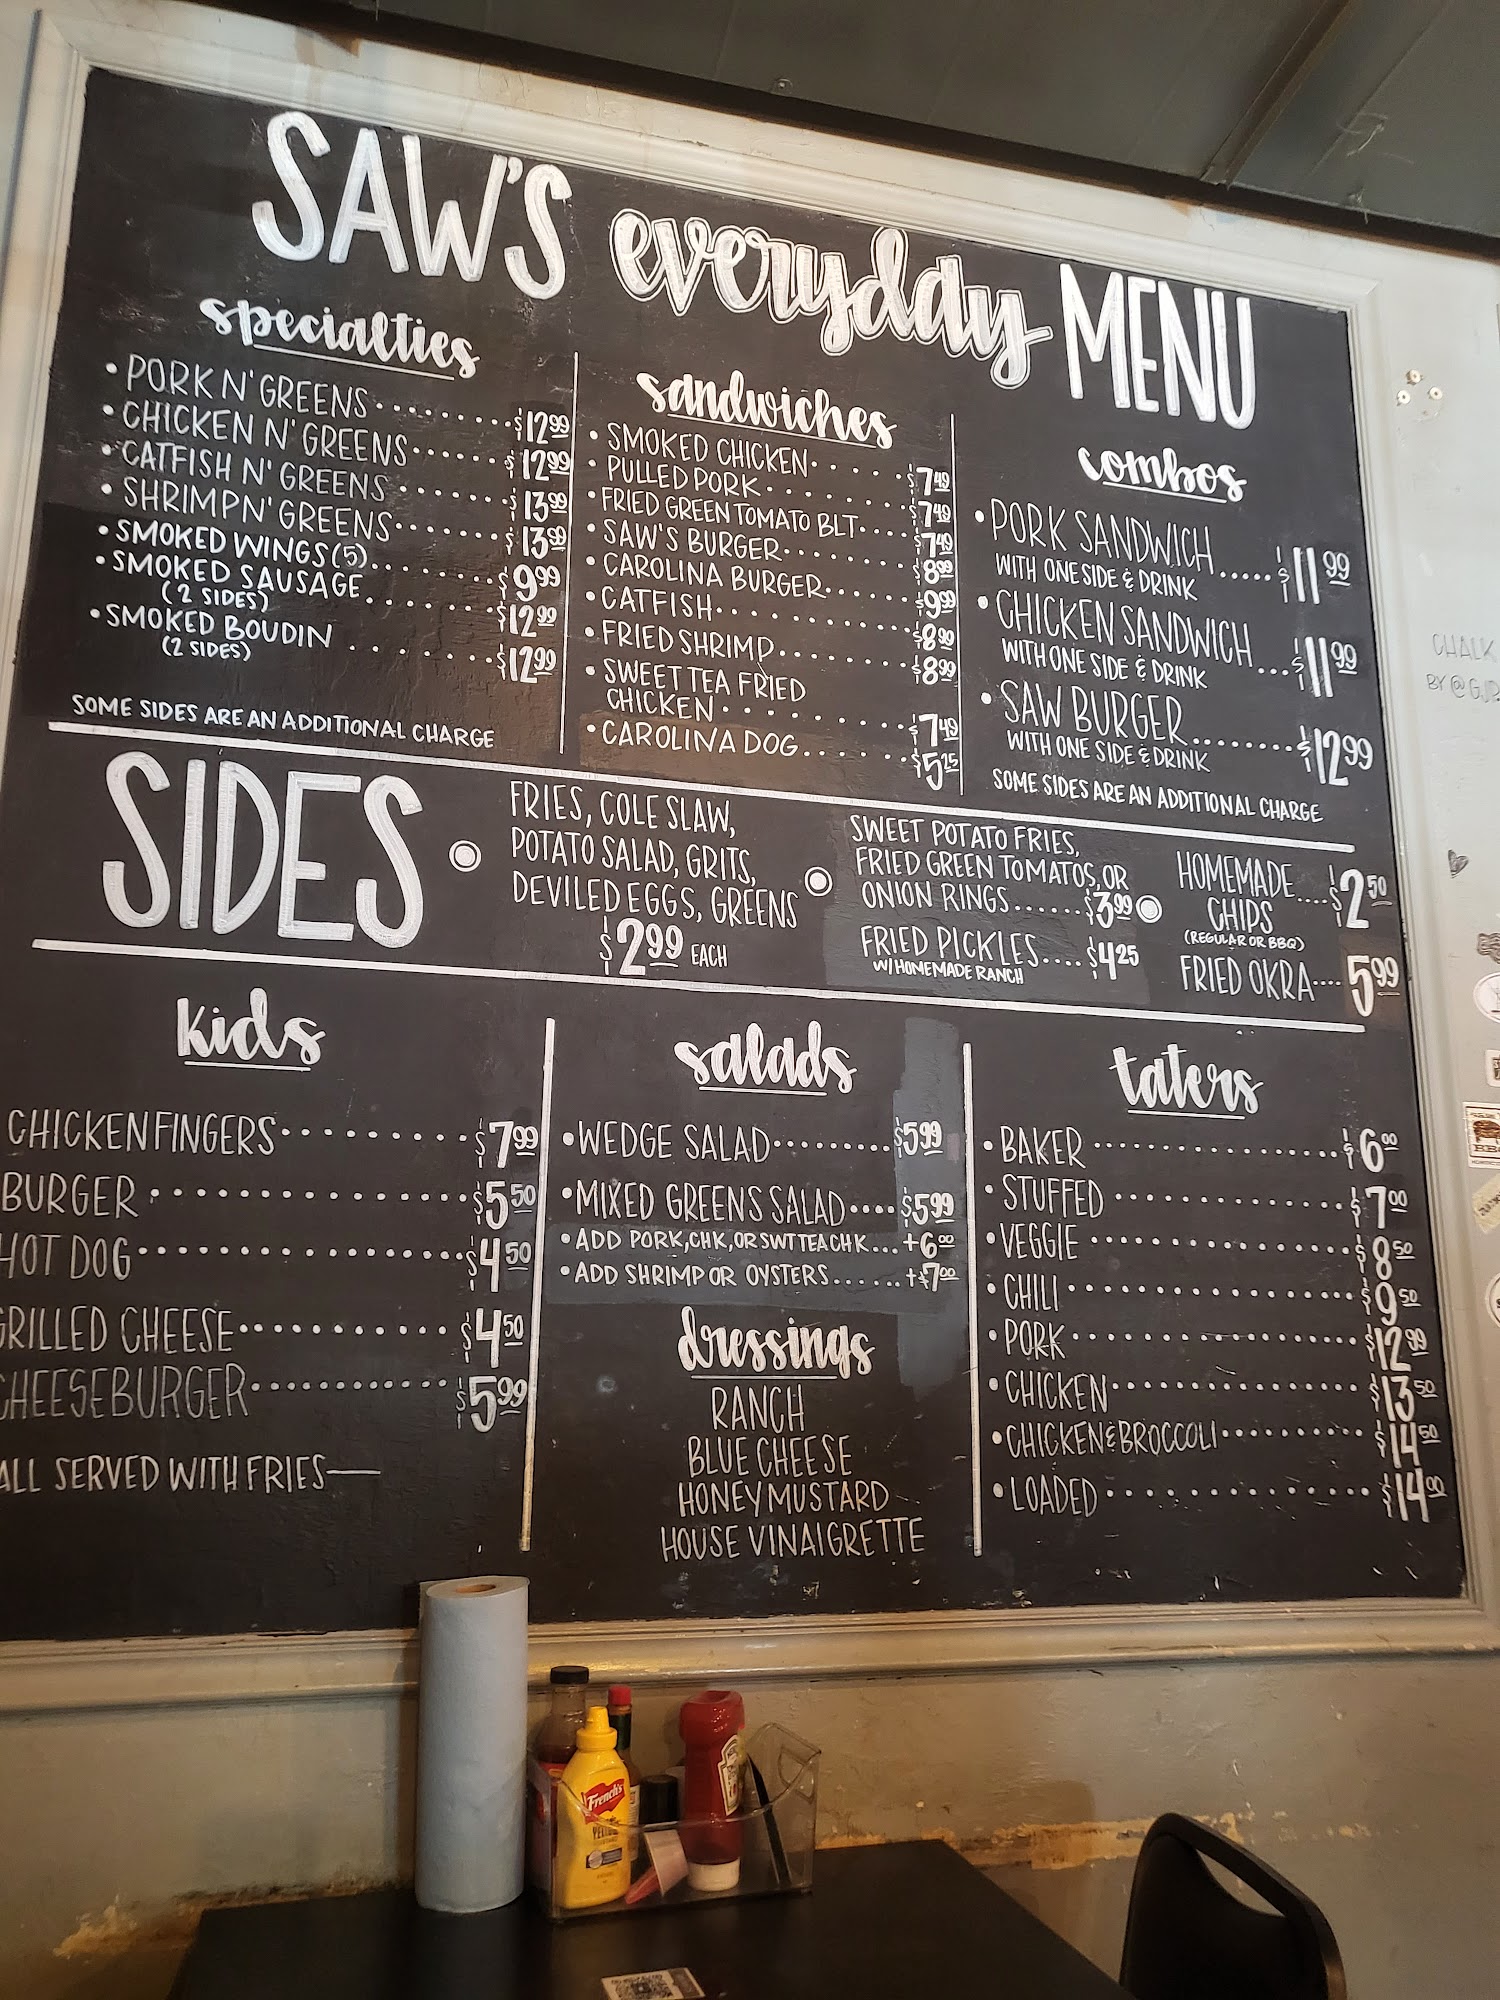 SAW'S everyday MENU
specialties
• PORK N' GREENS........$12.99
• CHICKEN N' GREENS......$12.99
• CATFISH N' GREENS......$13.99
• SHRIMP N' GREENS......$13.99
• SMOKED WINGS (5)......$9.99
• SMOKED SAUSAGE......$12.99
(2 SIDES)
• SMOKED BOUDIN......$12.99
(2 SIDES)
SOME SIDES ARE AN ADDITIONAL CHARGE
sandwiches
• SMOKED CHICKEN.....$7.49
• PULLED PORK.......$7.49
• FRIED GREEN TOMATO BLT....$7.49
• SAW'S BURGER.......$8.99
• CAROLINA BURGER......$9.99
• CATFISH........$8.99
• FRIED SHRIMP.......$8.99
• SWEET TEA FRIED
CHICKEN.......$7.49
• CAROLINA DOG......$5.25
combos
• PORK SANDWICH.....$11.99
WITH ONE SIDE & DRINK
• CHICKEN SANDWICH...$11.99
WITH ONE SIDE & DRINK
• SAW BURGER.......$12.99
WITH ONE SIDE & DRINK
SOME SIDES ARE AN ADDITIONAL CHARGE
SIDES
FRIES, COLE SLAW,
POTATO SALAD, GRITS,
DEVILED EGGS, GREENS
$2.99 EACH
SWEET POTATO FRIES,
FRIED GREEN TOMATOS, OR
ONION RINGS......$3.99
FRIED PICKLES....$4.25
W/ HOMEMADE RANCH
HOMEMADE....$2.50
CHIPS
(REGULAR OR BBQ)
FRIED OKRA....5.99
kids
CHICKEN FINGERS.........$7.99
BURGER...............$5.50
HOT DOG..............$4.50
GRILLED CHEESE..........$4.50
CHEESEBURGER...........$5.99
ALL SERVED WITH FRIES—
salads
• WEDGE SALAD.........$5.99
• MIXED GREENS SALAD....$5.99
• ADD PORK, CHK, OR SWT TEA CHK...+6.00
• ADD SHRIMP OR OYSTERS......+$7.00
dressings
RANCH
BLUE CHEESE
HONEY MUSTARD
HOUSE VINAIGRETTE
taters
• BAKER..............$6.00
• STUFFED.............$7.00
• VEGGIE.............$8.50
• CHILI..............$9.50
• PORK..............$12.99
• CHICKEN............$13.50
• CHICKEN & BROCCOLI.......$14.50
• LOADED.............$14.00
CHALK
BY @
French's